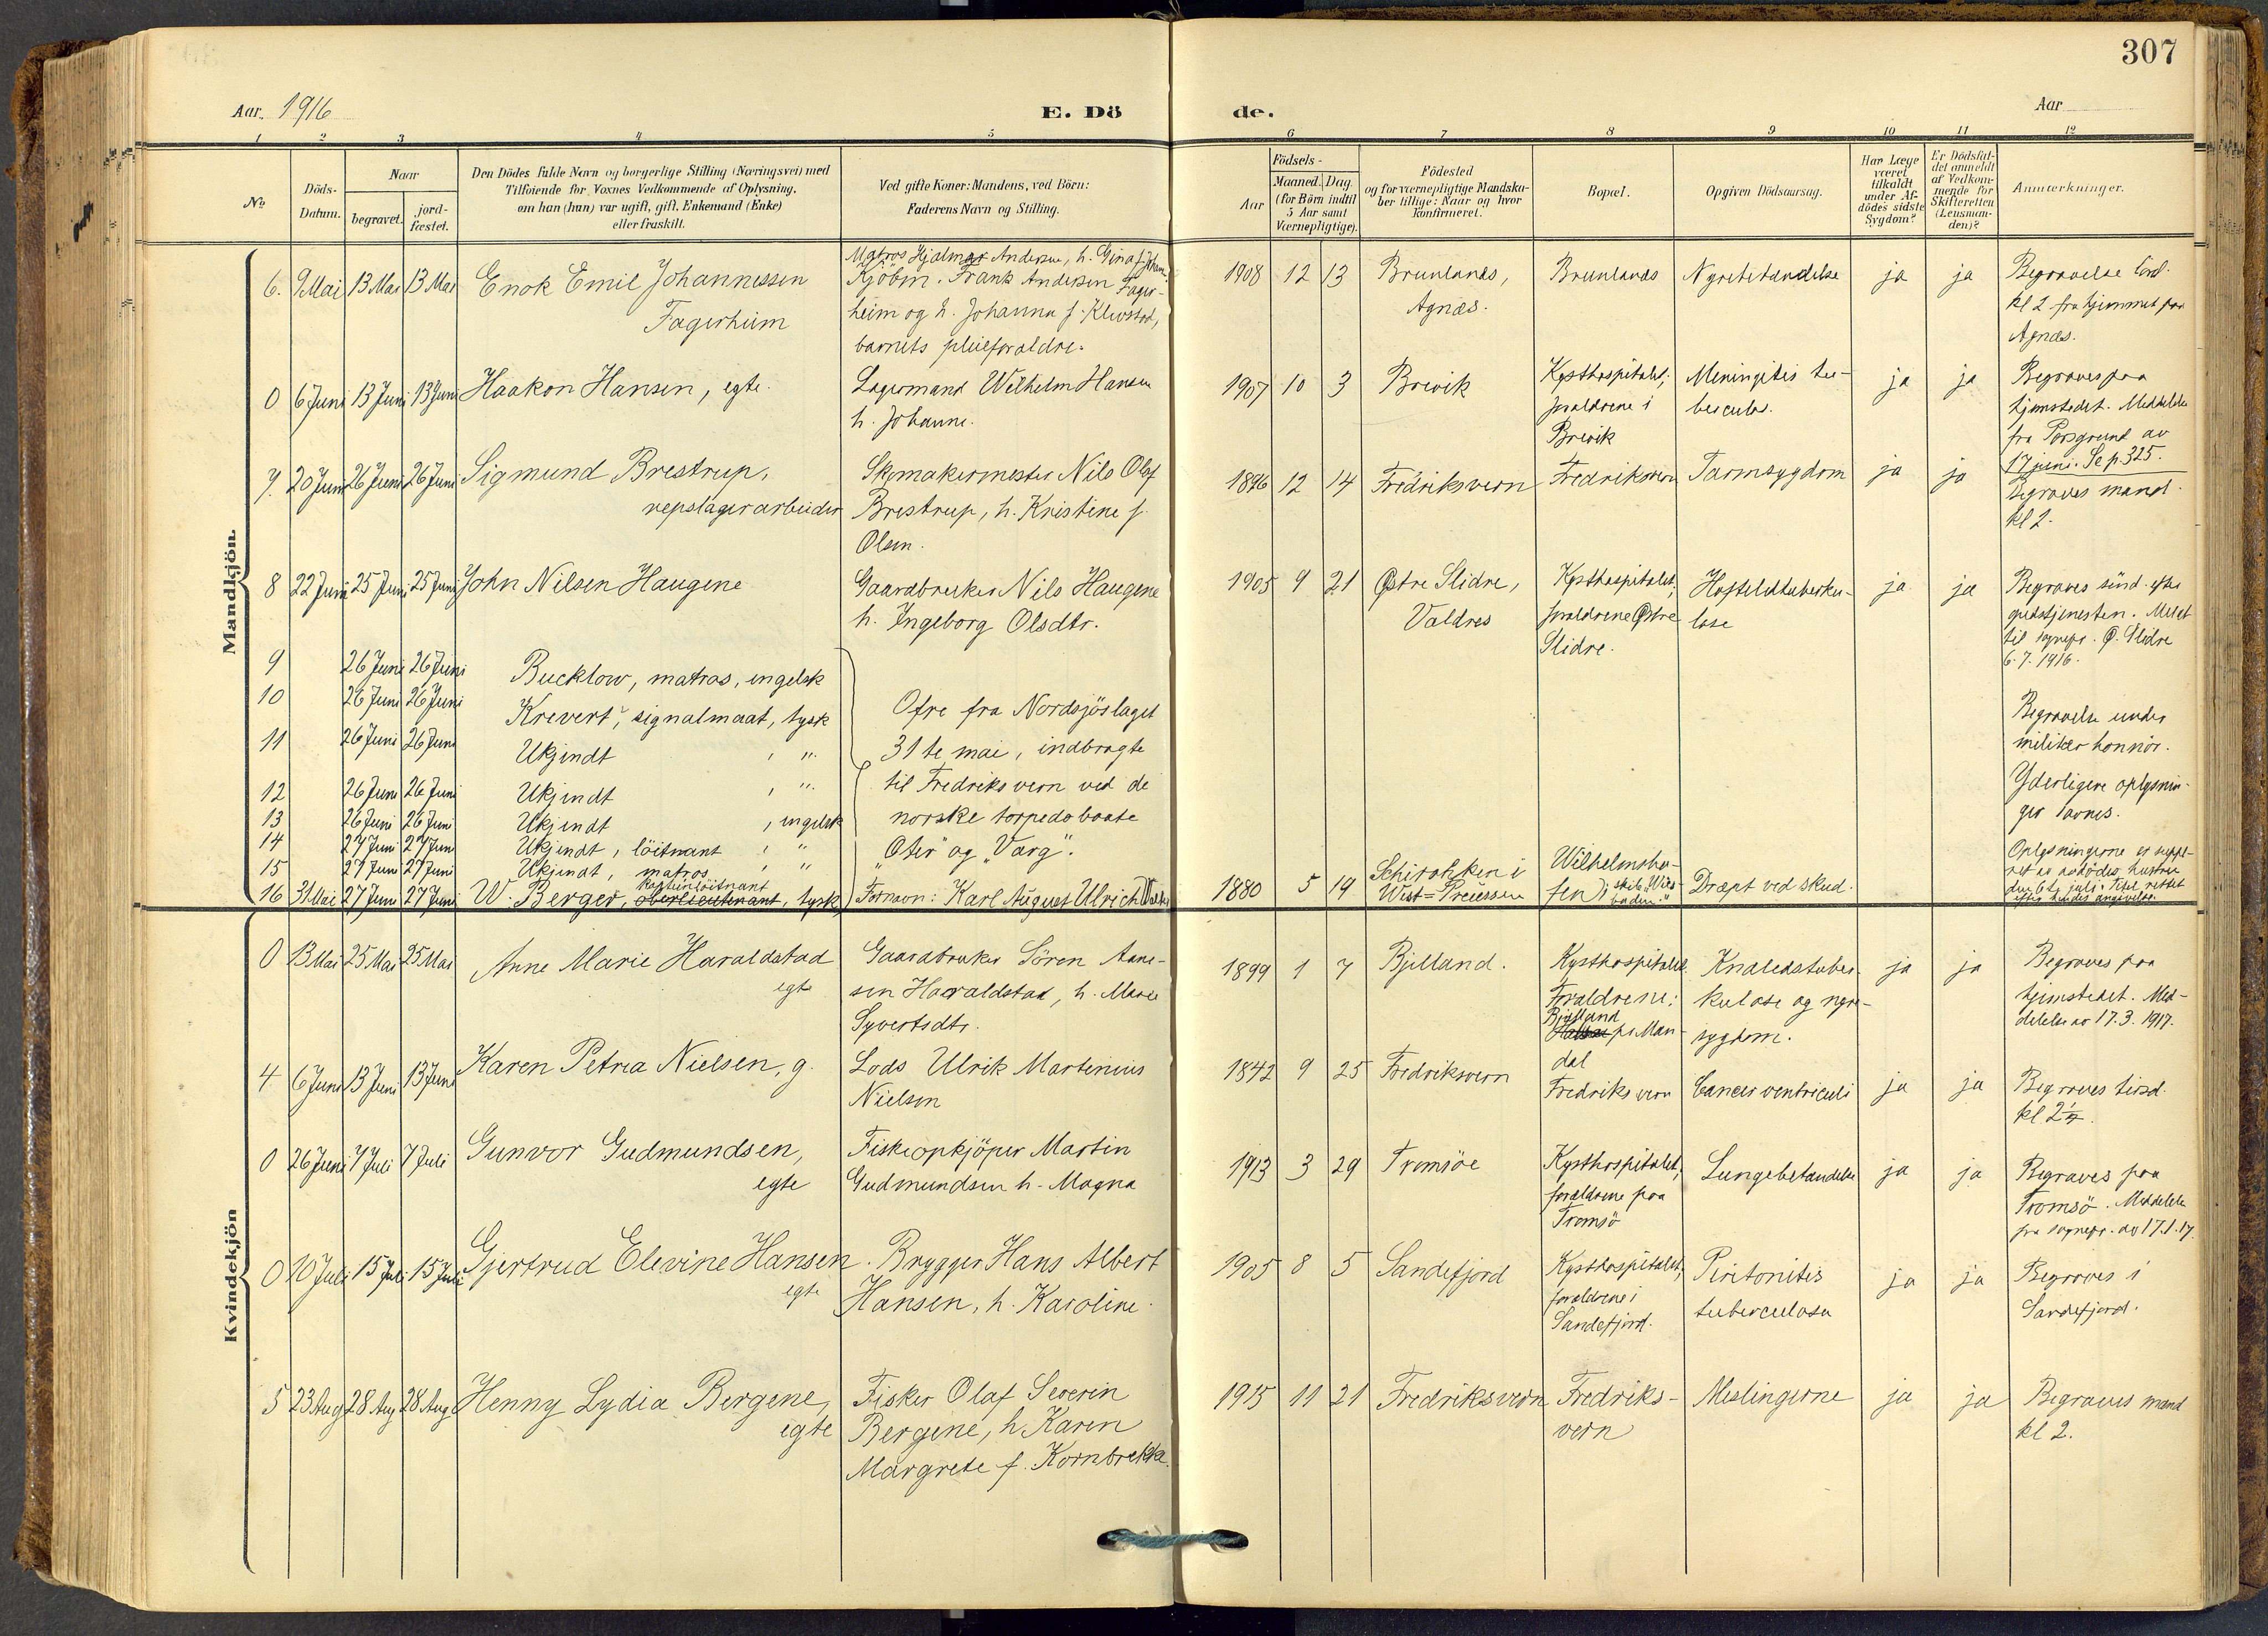 307
Aar 1916
E. Dö
de.
Aar
1 2 3 4 5 6 7 8 9 10 11 12
No
Döds-
Datum.
Naar
begravet.
jord-
fæstet.
Den Dödes fulde Navn og borgerlige Stilling (Næringsvei) med
Tilföiende for Voxnes Vedkommende af Oplysning,
om han (hun) var ugift, gift, Enkemand (Enke)
eller fraskilt.
Ved gifte Koner: Mandens, ved Börn:
Faderens Navn og Stilling.
Födsels-
Aar
Maaned. Dag
(for Börn indtil
5 Aar samt
Værnepligtige).
Födested
og for værnepligtige Mandska-
ber tillige: Naar og hvor
konfirmeret.
Bopæl.
Opgiven Dödsaarsag.
Har Læge
været
tilkaldt
under Af-
dödes sidste
Sygdom?
Er Dödsfal-
det anmeldt
af Vedkom-
mende for
Skifteretten
(Lensman-
den)?
Anmærkninger.
Mandkjön.
6. 9 Mai 13 Mai 13 Mai
Enok Emil Johannessen
Fagerheim
Matros Hjalmar Andersen, h. Gina f.
Kjöbm. Frank Andersen Fager-
heim og h. Johanna f. Klevstad,
barnets pleieforældre.
1908 12 13
Brunlanes,
Agnæs.
Brunlanes
Nyrebetændelse
ja ja
Begravelse lörd.
kl 2 fra hjemmet paa
Agnæs.
0 6 Juni 13 Juni 13 Juni
Haakon Hansen, egte.
Lagermand Wilhelm Hansen
h. Johanne.
1907 10 3
Brevik
Kysthospitalet;
forældrene i
Brevik
Meningitis tu-
berculos.
ja ja
Begraves paa
hjemstedet. Meddelelse
fra Porsgrund av
17 juni. Se p. 325.
7. 20 Juni 26 Juni 26 Juni
Sigmund Brestrup,
repslagerarbeider
Skomakermester Nils Olaf
Brestrup, h. Kristine f.
Olsen.
1896 12 14
Fredriksvern
Fredriksvern
Tarmsygdom
ja ja
Begraves mand.
kl 2.
8 22 Juni 25 Juni 25 Juni
John Nilsen Haugene
Gaardbruker Nils Haugene
h. Ingeborg Olsdtr.
1905 9 21
Østre Slidre,
Valdres
Kysthospitalet;
forældrene Østre
Slidre.
Hofteledstuberku-
lose
ja ja
Begraves sönd. efter
gudstjenesten. Meldt
til sognepr. Ø. Slidre
6.7.1916.
9 26 Juni 26 Juni
Bucklow, matros, engelsk
10 26 Juni 26 Juni
Krevert, signalmaat, tysk
11 26 Juni 26 Juni
Ukjendt , "
12 26 Juni 26 Juni
Ukjendt , "
13 26 Juni 26 Juni
Ukjendt , engelsk
14 27 Juni 27 Juni
Ukjendt, löitnant , "
15 27 Juni 27 Juni
Ukjendt, matros , "
Ofre fra Nordsjöslaget
31te mai, indbragte
til Fredriksvern ved de
norske torpedobaate
"Oter" og "Varg".
Begravelse under
militær honnör.
Yderligere oplysnin-
ger savnes.
16 31 Mai 27 Juni 27 Juni
kapteinlöitnant
W. Berger, oberlieutenant, tysk
Fornavn: Karl August Ulrich
1880 5 19
Schirokken i
West-Preussen
Wilhelmsha-
fen, skib "Wies-
baden."
Dræpt ved skud.
Oplysningerne er suppl-
ret av avdödes hustru
den 6te juli. Titel rettet
efter hendes angivelse.
Kvindekjön
0 13 Mai 25 Mai 25 Mai
Anne Marie Haraldstad
egte
Gaardbruker Sören Aane-
sen Haraldstad, h. Maren
Syvertsdtr.
1899 1 7
Bjelland.
Kysthospitalet.
Forældrene:
Bjelland
pr. Man-
dal
Knæledstuber-
kulose og nyre-
sygdom.
ja ja
Begraves paa
hjemstedet. Med-
delelse av 17.3.1917.
4 6 Juni 13 Juni 13 Juni
Karen Petrea Nielsen, g.
Lods Ulrik Martinius
Nielsen
1842 9 25
Fredriksvern
Fredriksvern
Cancer ventriculi
ja ja
Begraves tirsd.
kl 2 1/2.
0 26 Juni 7 Juli 7 Juli
Gunvor Gudmundsen,
egte
Fiskeopkjöper Martin
Gudmundsen h. Magna
1913 3 29
Tromsöe
Kysthospitalet;
forældrene paa
Tromsö
Lungebetændelse
ja ja
Begraves paa
Tromsö. Meddelelse
fra sognepr. av 17.1.17.
0 10 Juli 15 Juli 15 Juli
Gjertrud Elevine Hansen
egte
Brygger Hans Albert
Hansen, h. Karoline.
1905 8 5
Sandefjord
Kysthospitalet;
forældrene i
Sandefjord.
Peritonitis
tuberculosa
ja ja
Begraves i
Sandefjord.
5 23 Aug 28 Aug 28 Aug
Henny Lydia Bergene,
egte
Fisker Olaf Severin
Bergene, h. Karen
Margrete f. Kornbrekke.
1915 11 21
Fredriksvern
Fredriks-
vern
Meslingerne
ja ja
Begraves mand
kl 2.